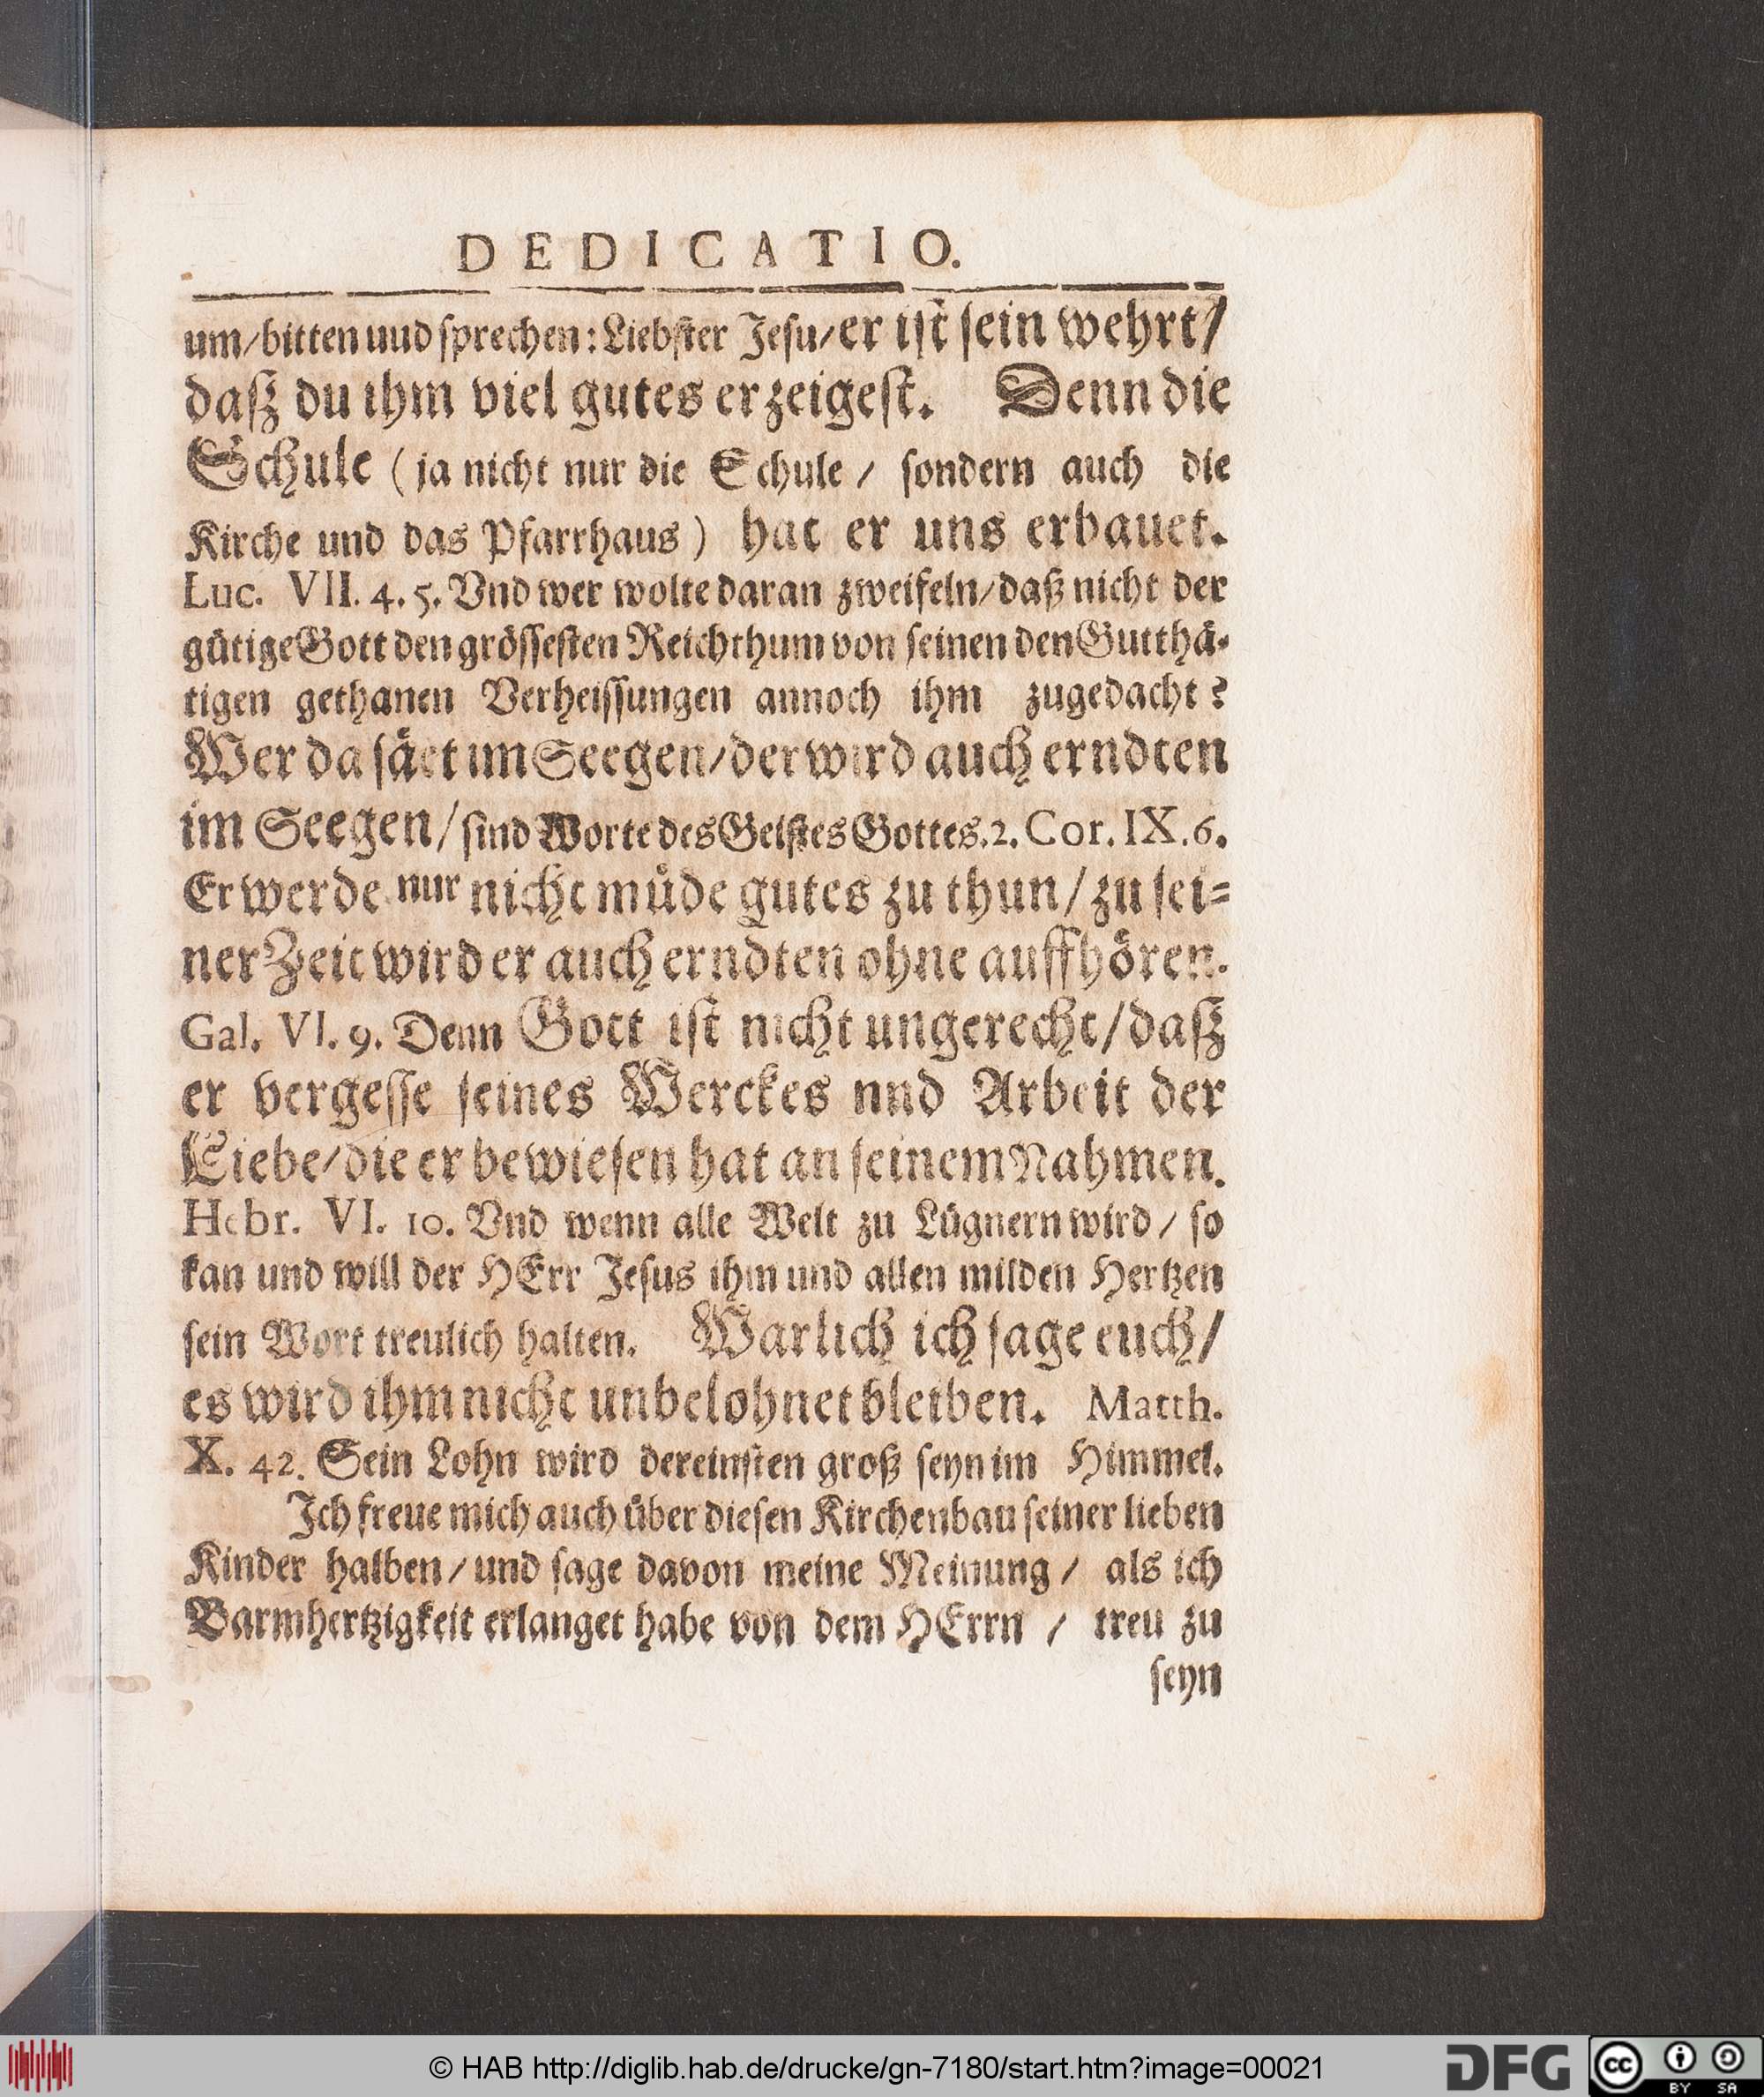 DEDICATIO.
um/bitten uud sprechen: Liebster Jesu/er ist sein wehrt/
daß du ihm viel gutes erzeigest. Denn die
Schule (ja nicht nur die Schule / sondern auch die
Kirche und das Pfarrhaus) hat er uns erbauet.
Luc. VII. 4. 5. Vnd wer wolte daran zweifeln/daß nicht der
gütige Gott den grössesten Reichthum von seinen den Gutthä-
tigen gethanen Verheissungen annoch ihm zugedacht?
Wer da säet im Seegen/der wird auch erndten
im Seegen/sind Worte des Geistes Gottes. 2. Cor. IX. 6.
Er werde nur nicht müde gutes zu thun/zu sei-
ner Zeit wird er auch erndten ohne auffhören.
Gal. VI. 9. Denn Gott ist nicht ungerecht/daß
er vergesse seines Werckes nnd Arbeit der
Liebe/die er bewiesen hat an seinem Nahmen.
Hebr. VI. 10. Vnd wenn alle Welt zu Lügnern wird/ so
kan und will der HErr Jesus ihm und allen milden Hertzen
sein Wort treulich halten. Warlich ich sage euch/
es wird ihm nicht unbelohnet bleiben. Matth.
X. 42. Sein Lohn wird dereinsten groß seyn im Himmel.
Ich freue mich auch über diesen Kirchenbau seiner lieben
Kinder halben/ und sage davon meine Meinung / als ich
Barmhertzigkeit erlanget habe von dem HErrn / treu zu
seyn
© HAB http://diglib.hab.de/drucke/gn-7180/start.htm?image=00021
DFG
cc BY SA